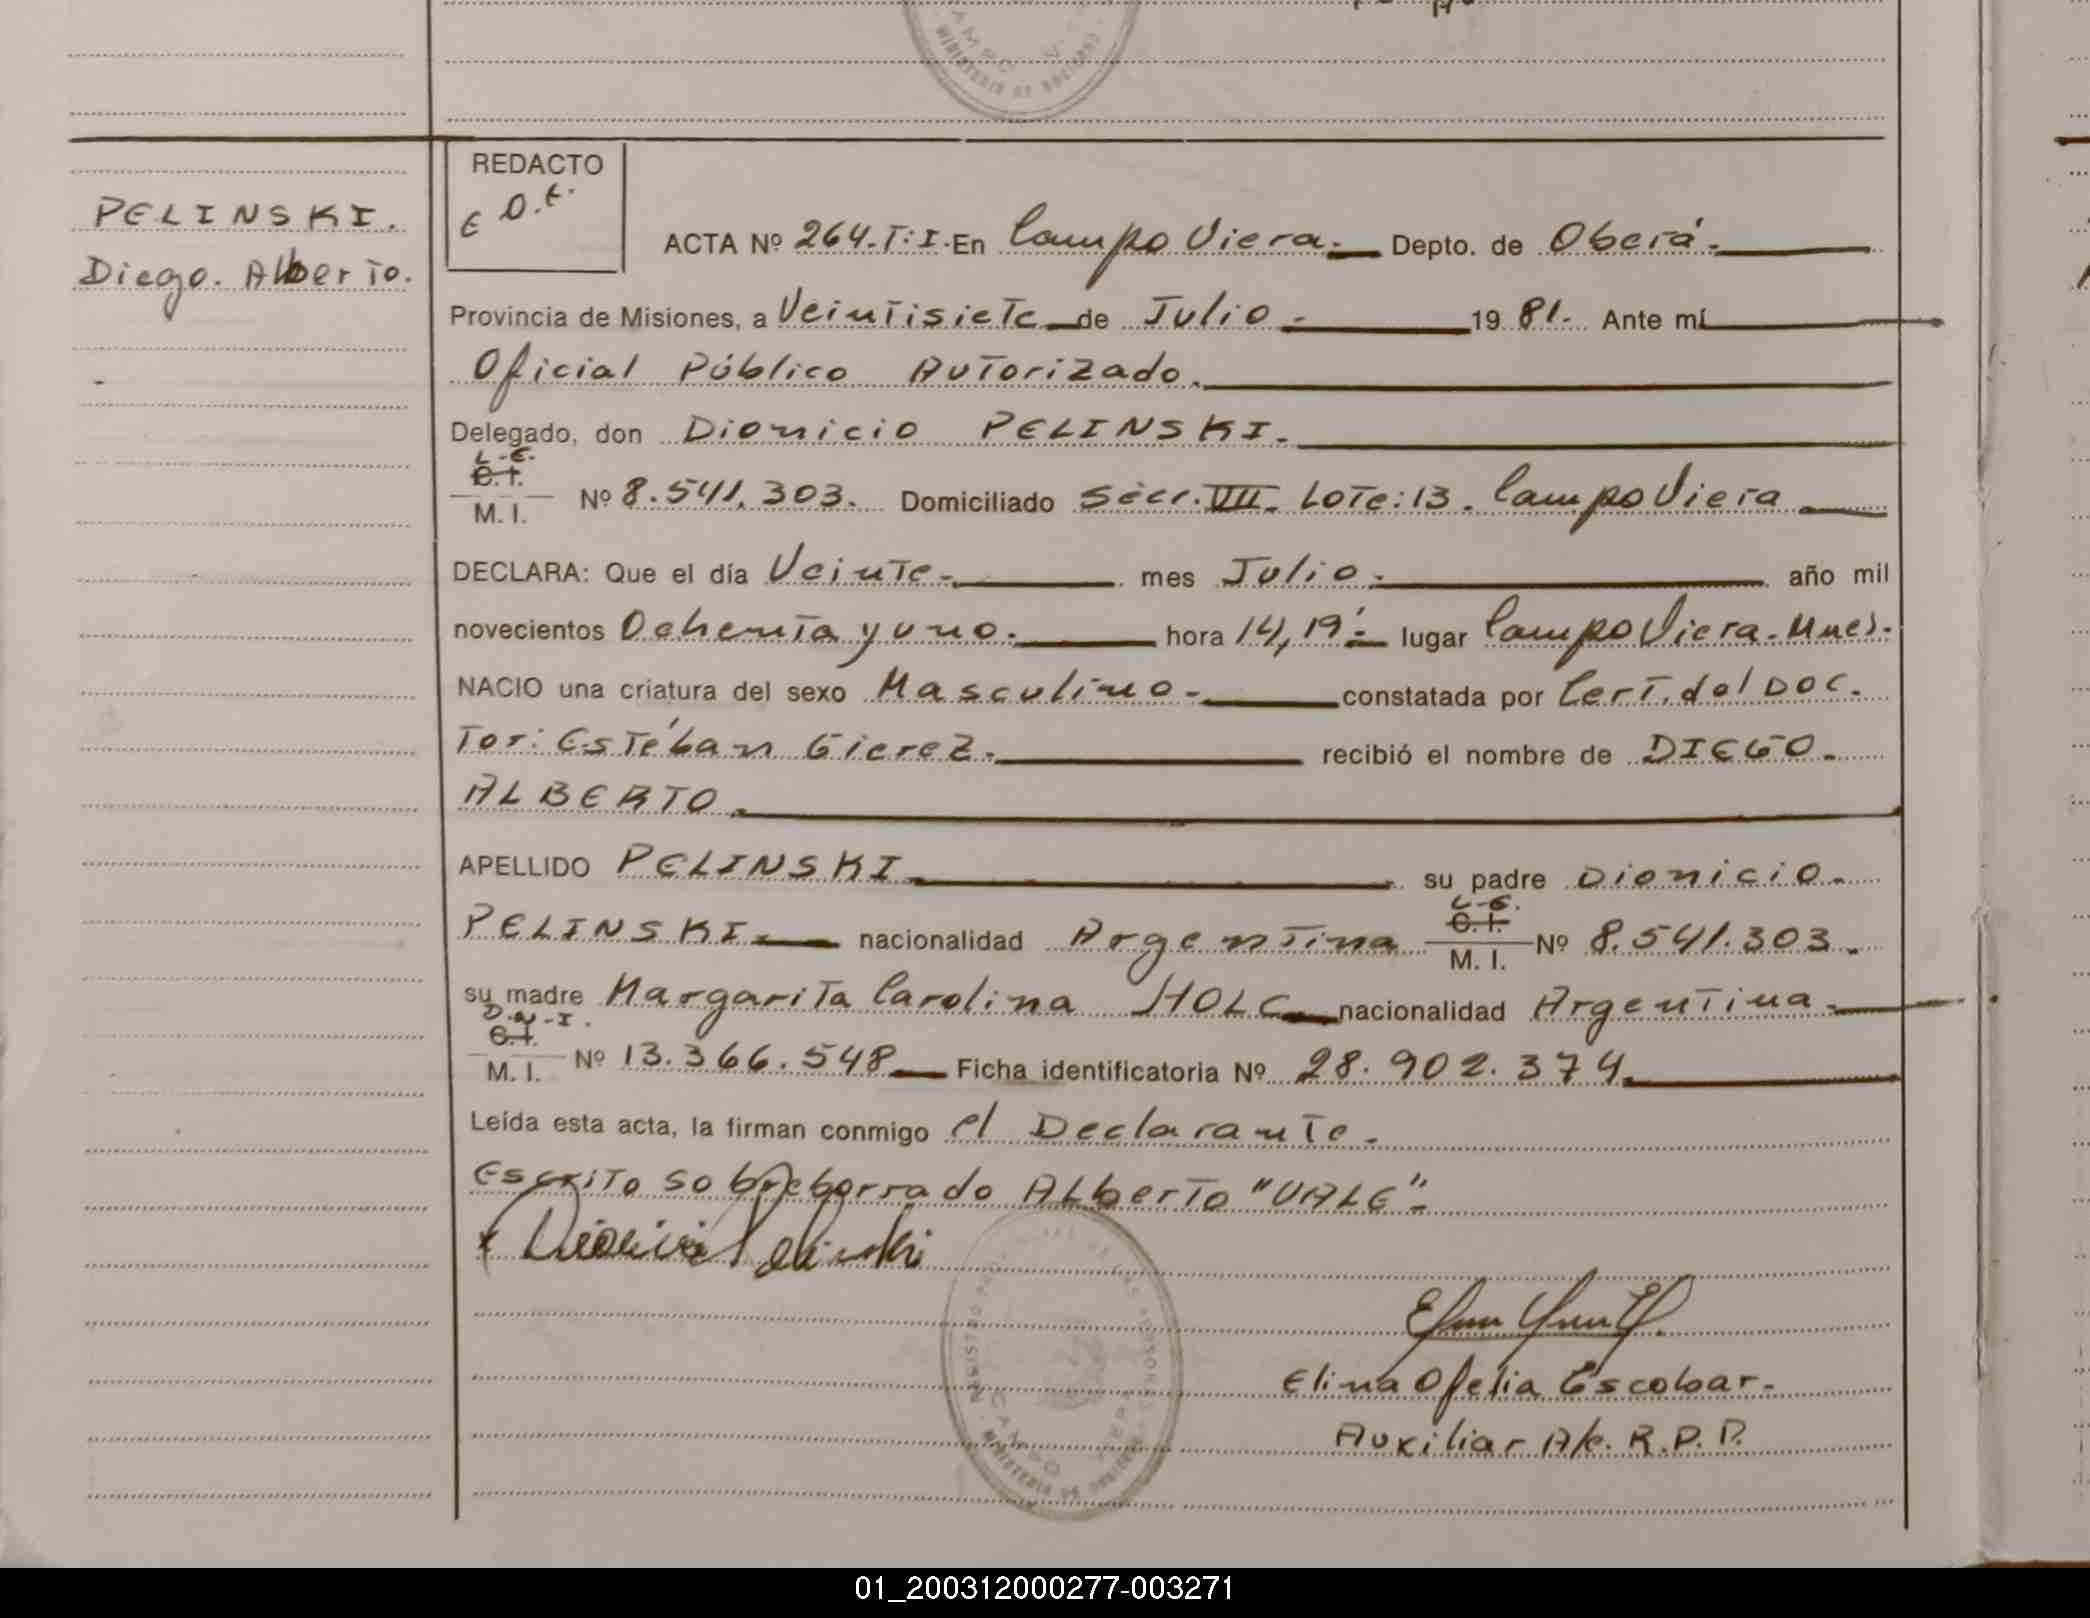 PELINSKI.
Diego. Alberto.
REDACTO
E O.E.
ACTA Nº 264-T:I-En Campo Viera.- Depto. de Oberá.-
Provincia de Misiones, a Veintisiete de Julio.- 1981.- Ante mí
Oficial Público Autorizado.
Delegado, don Dionicio PELINSKI.
L-E.
C.I.
M. I. Nº 8.541.303. Domiciliado Secc. VIII. Lote: 13. Campo Viera
DECLARA: Que el día Veinte.- mes Julio.- año mil
novecientos Ochenta y uno.- hora 14,19'.- lugar Campo Viera-Mnes.
NACIO una criatura del sexo Masculino.- constatada por Cert. del Doc.
Tor: Estéban Gierez.- recibió el nombre de DIEGO.-
ALBERTO.
APELLIDO PELINSKI su padre Dionicio.-
L-E.
PELINSKI.- nacionalidad Argentina C.I. Nº 8.541.303.-
M. I.
su madre Margarita Carolina HOLC nacionalidad Argentina.-
D.N-I.
C.I.
M. I. Nº 13.366.548 Ficha identificatoria Nº 28.902.374.
Leída esta acta, la firman conmigo el Declarante.-
Escrito sobreborrado Alberto "VALE".-
Dionicio Pelinski
Elina Ofelia Escobar.-
Auxiliar A/c. R.P.P.
REGISTRO
CAMPO VIERA
MINISTERIO DE GOBIERNO
01_200312000277-003271